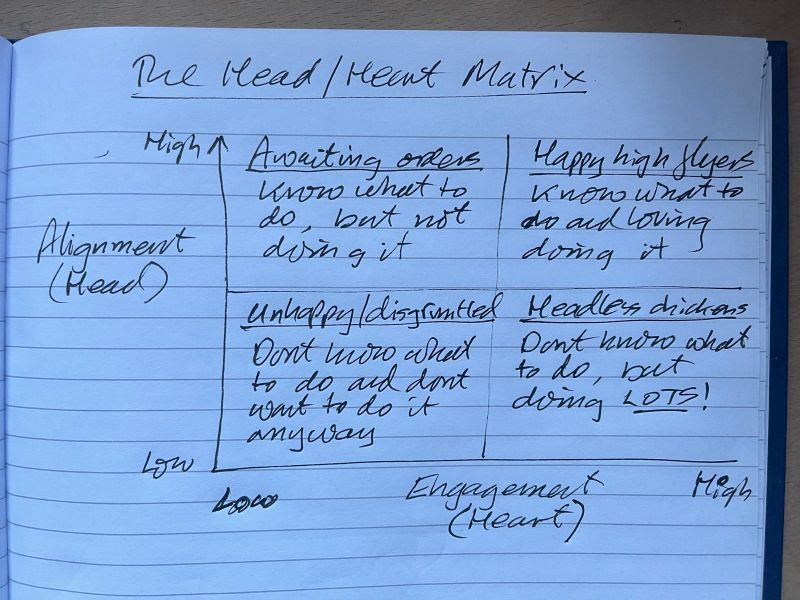 The Head/Heart Matrix
High
Awaiting orders
Know what to
do, but not
doing it
Happy high flyers
Know what to
do and loving
doing it
Alignment
(Head)
Unhappy/disgruntled
Dont know what
to do and dont
want to do it
anyway
Headless chickens
Dont know what
to do, but
doing LOTS!
Low
Low
Engagement
(Heart)
High